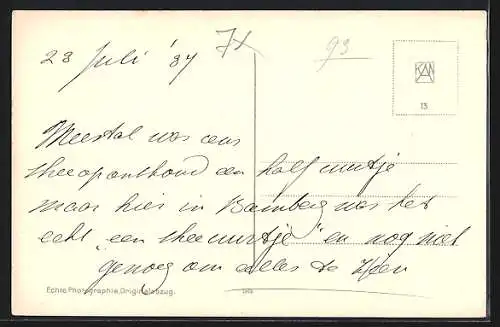 28 Juli '37
7x
93
KSAN
13
Meestal was ons
theeoponthoud een half uurtje
maar hier in Bamberg was het
echt "een theeuurtje" en nog niet
genoeg om alles te zien
Echte Photographie, Originalabzug.